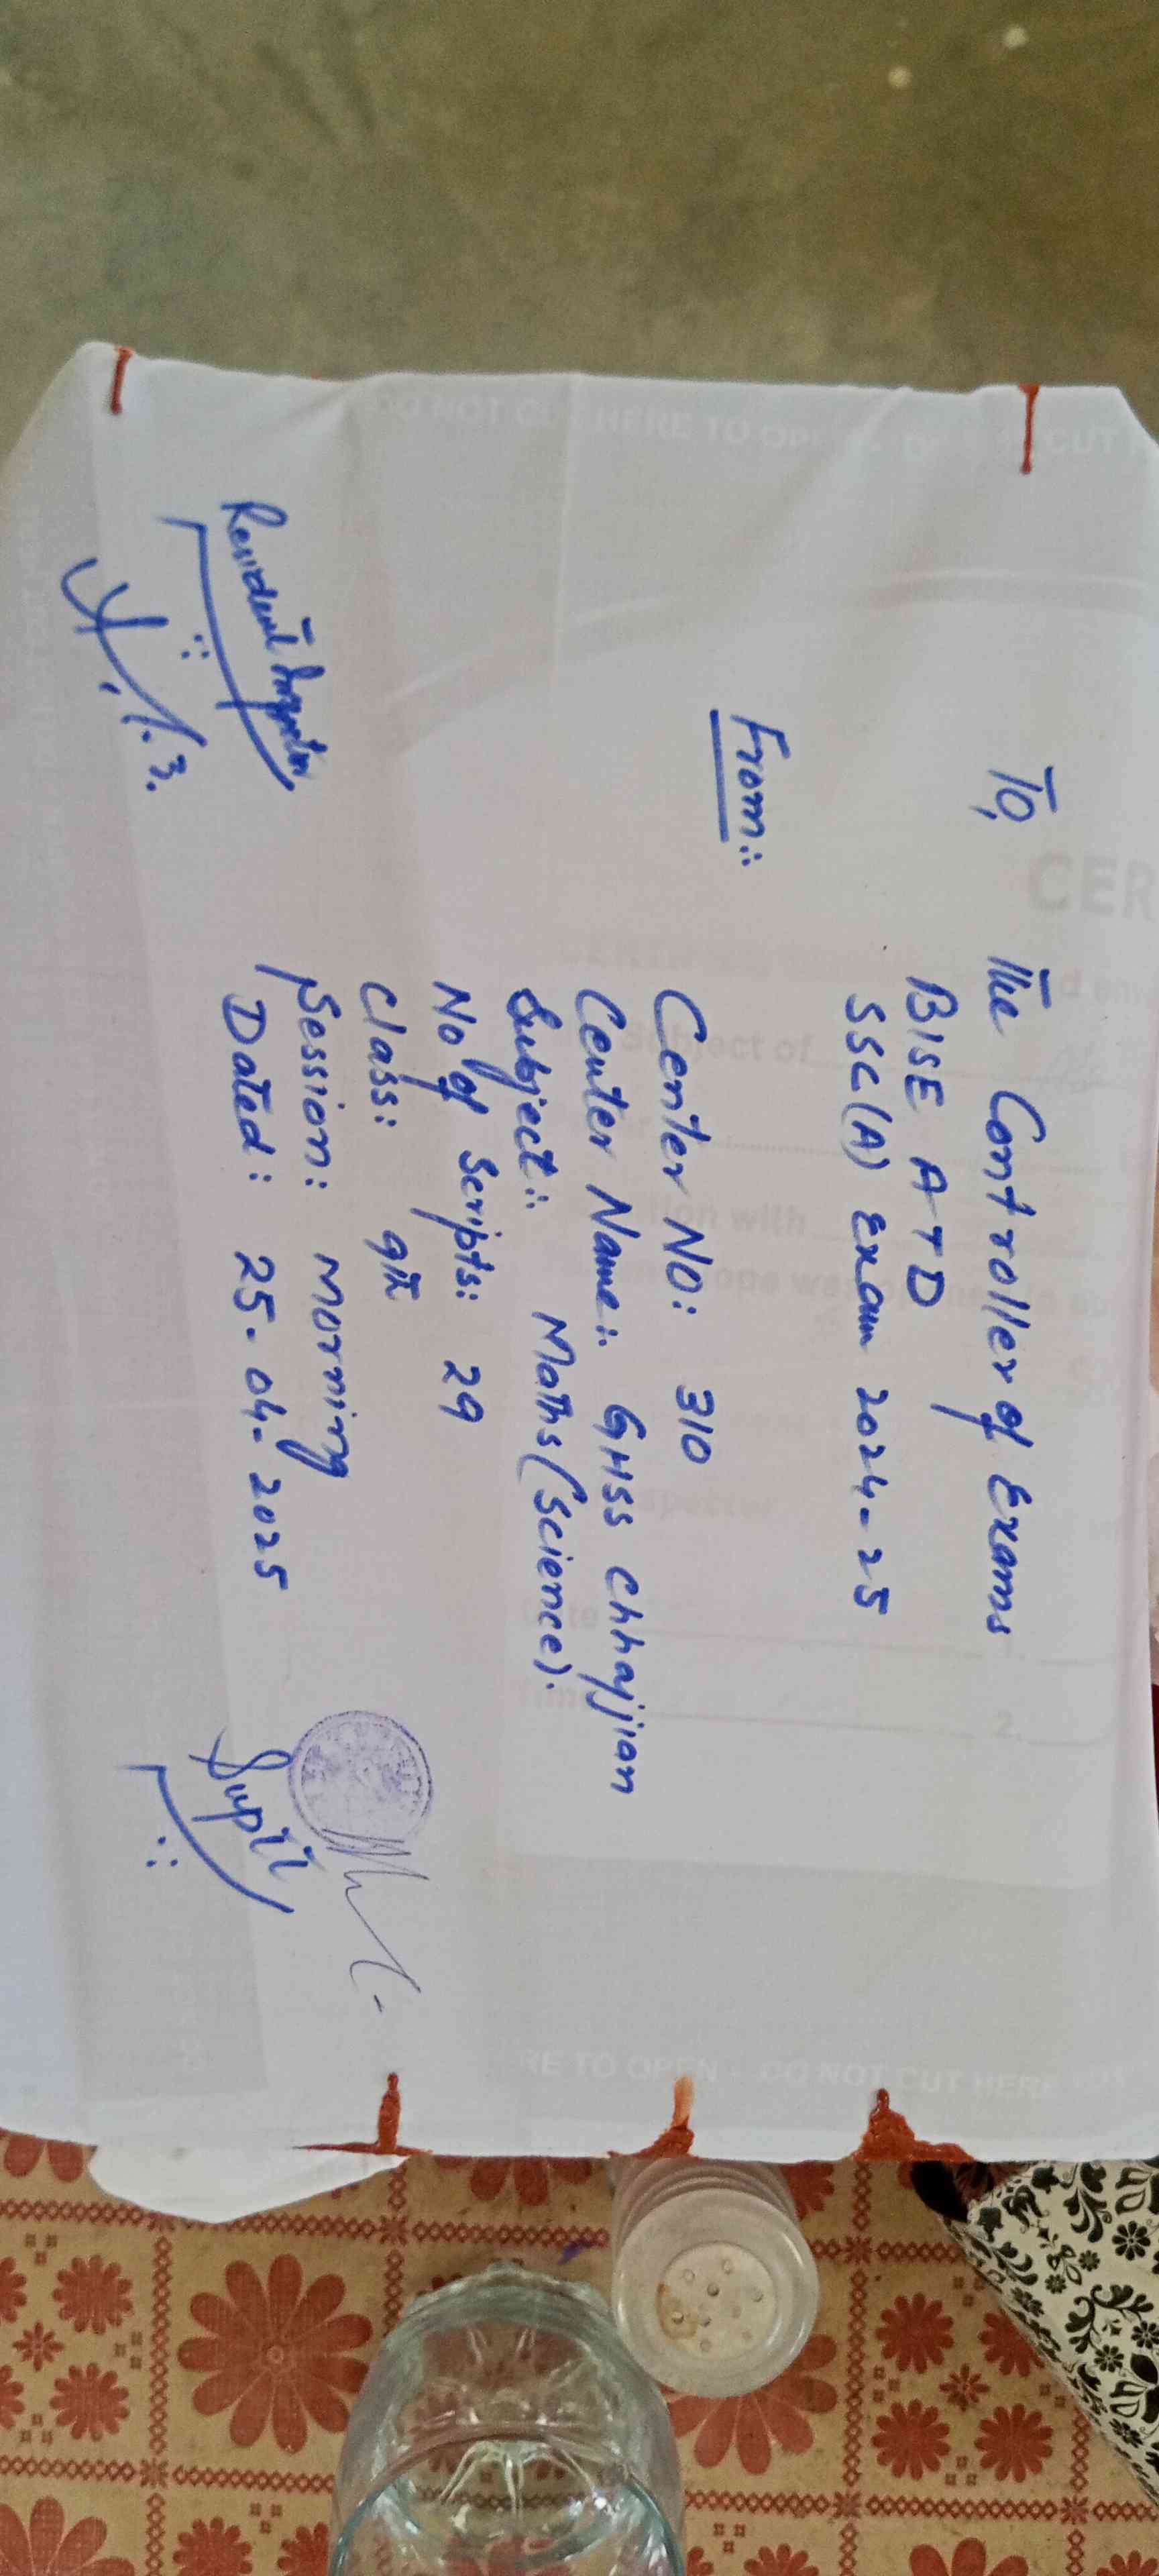 DO NOT CUT HERE TO OPEN DO NOT CUT
To, The Controller of Exams
BISE ATD
SSC(A) Exam 2024-25
From:
Center No: 310
Center Name: GHSS Chhajjian
Subject: Maths (Science).
No of Scripts: 29
Class: 9th
Session: Morning
Dated: 25.04.2025
Resident Inspector
Supdt
CER
Subject of
with
Date
1.
Time
2.
RE TO OPEN DO NOT CUT HERE